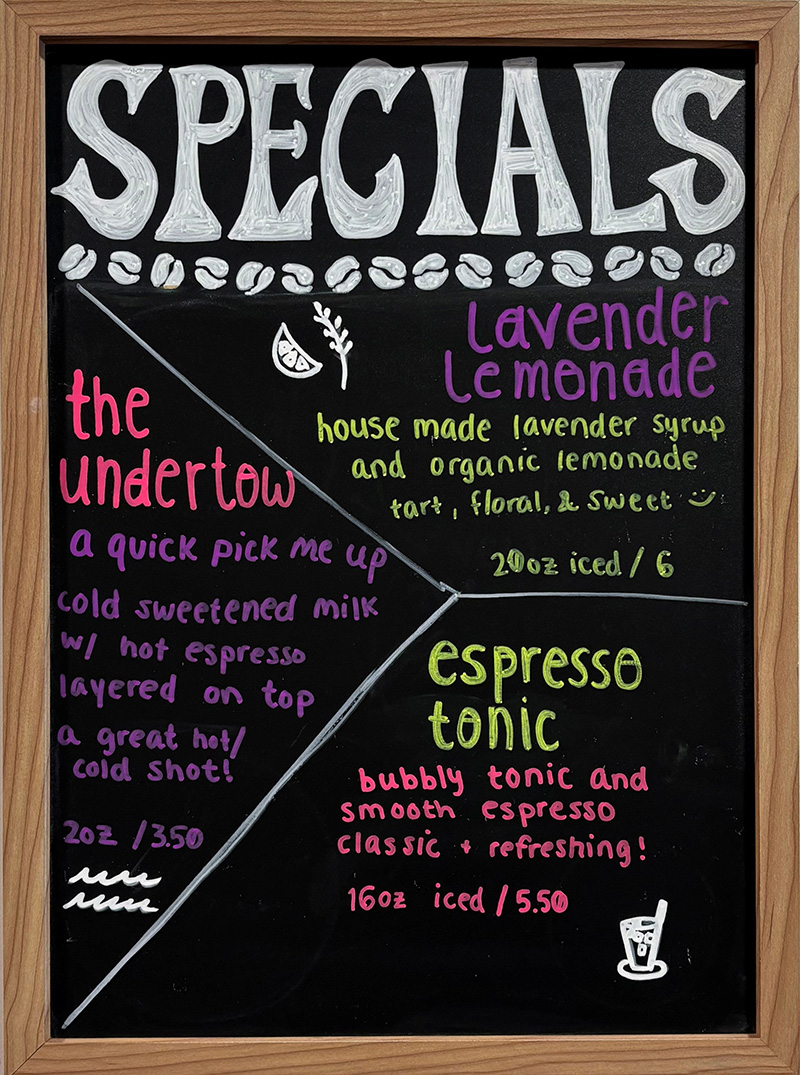 SPECIALS
the
undertow
a quick pick me up
cold sweetened milk
w/ hot espresso
layered on top
a great hot/
cold shot!
2oz /3.50
lavender
lemonade
house made lavender syrup
and organic lemonade
tart, floral, & sweet :)
20oz iced / 6
espresso
tonic
bubbly tonic and
smooth espresso
classic + refreshing!
16oz iced / 5.50